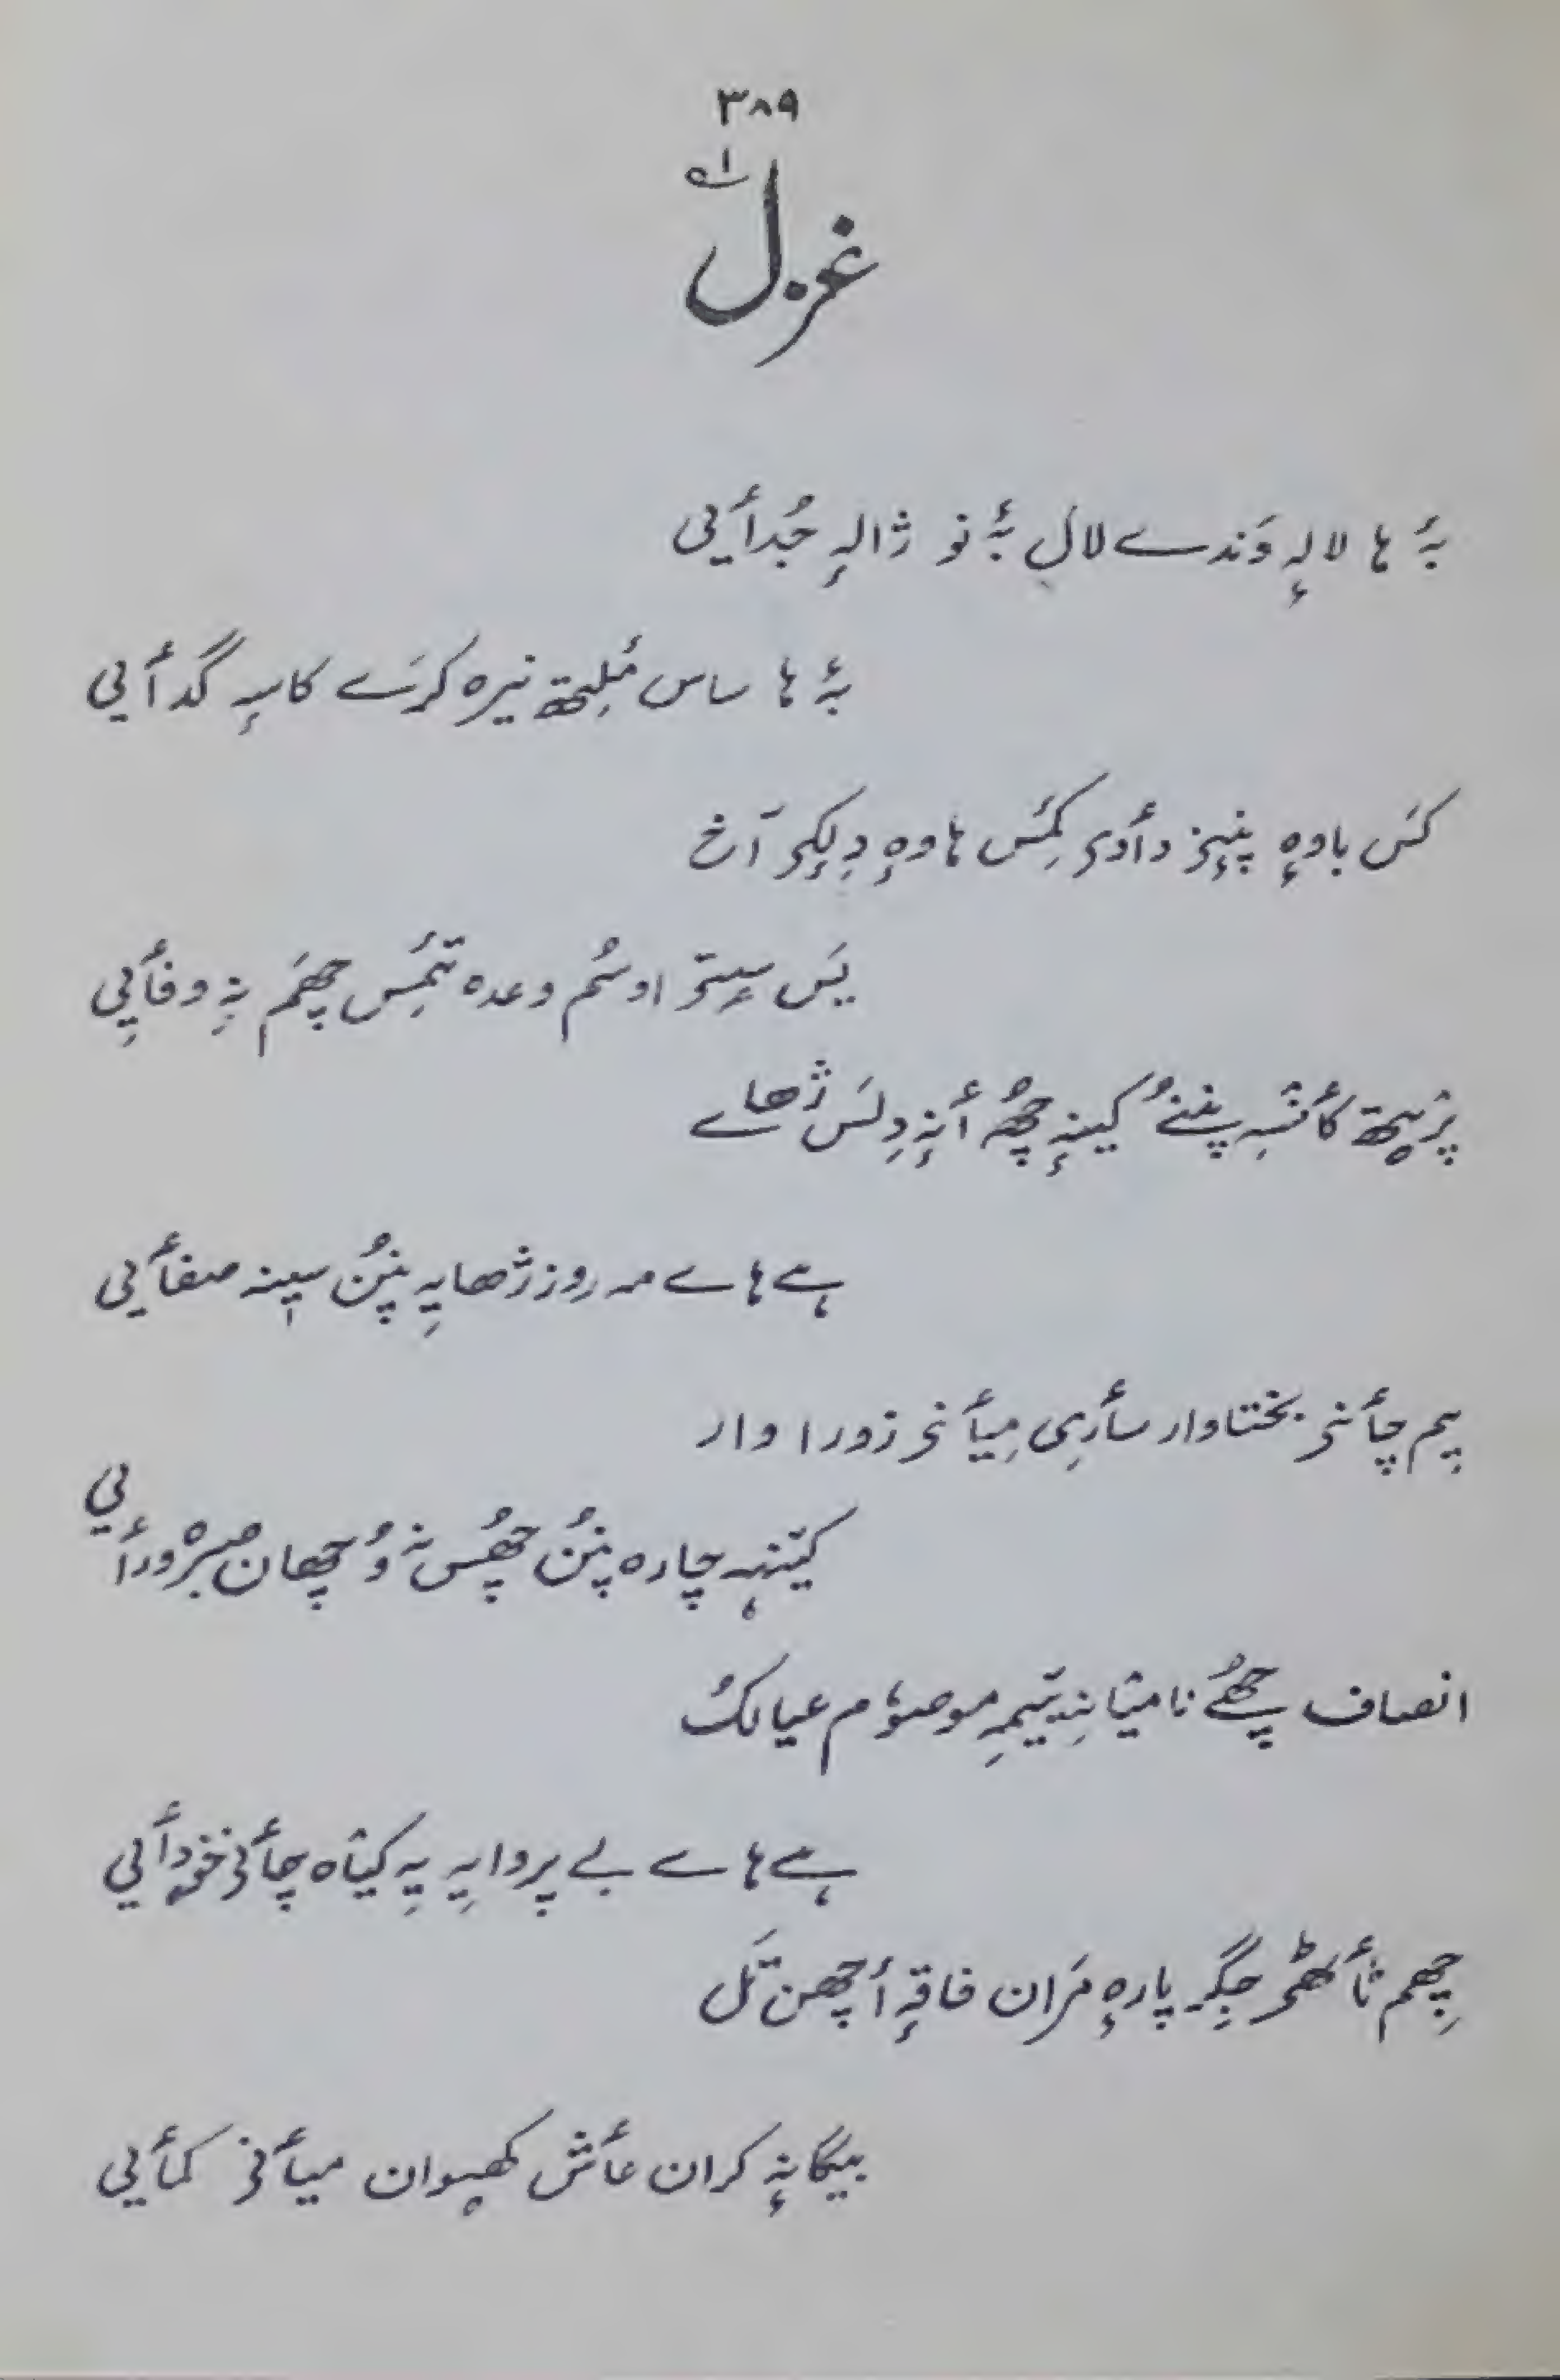 ۳۸۹
غزل
بہٕ ہا لالہٕ وَندے لال بہٕ نو ژالہٕ جُدأیی
بہٕ ہا ساس مٔلِتھ نیرہ کرَے کاسہٕ گدأیی
کَس باوہٕ پنٕنۍ دأدۍ کَمِس ہاوہٕ دِلٕکۍ آخ
یَس سٟتۍ اوسُم وعدہ تٔمِس چھَم نہٕ وفأیی
پرٛیتھ کأنٛسہِ پننُے کینہٕ چھُ أنہٕ دِلَس ژھاے
ہے ہاے مہ روز ژھایہِ پنُن سینہ صفأیی
یِم چأنۍ بختاوار سأری مِیأنۍ زوراوار
کینٛہہ چارہ پنُن چھُس نہٕ وُچھان صبرٛورأیی
انصاف چھُے نا میٛانہِ یتیمہِ موصوٗم عیالُک
ہے ہاے بے پروایہِ یہِ کیٛاہ چأنۍ خۄدأیی
چھِم ثأٹھۍ جِگر پارہٕ مَران فاقہٕ أچھن تَل
بیگانہٕ کران عأش کھیوان میأنۍ کمأیی